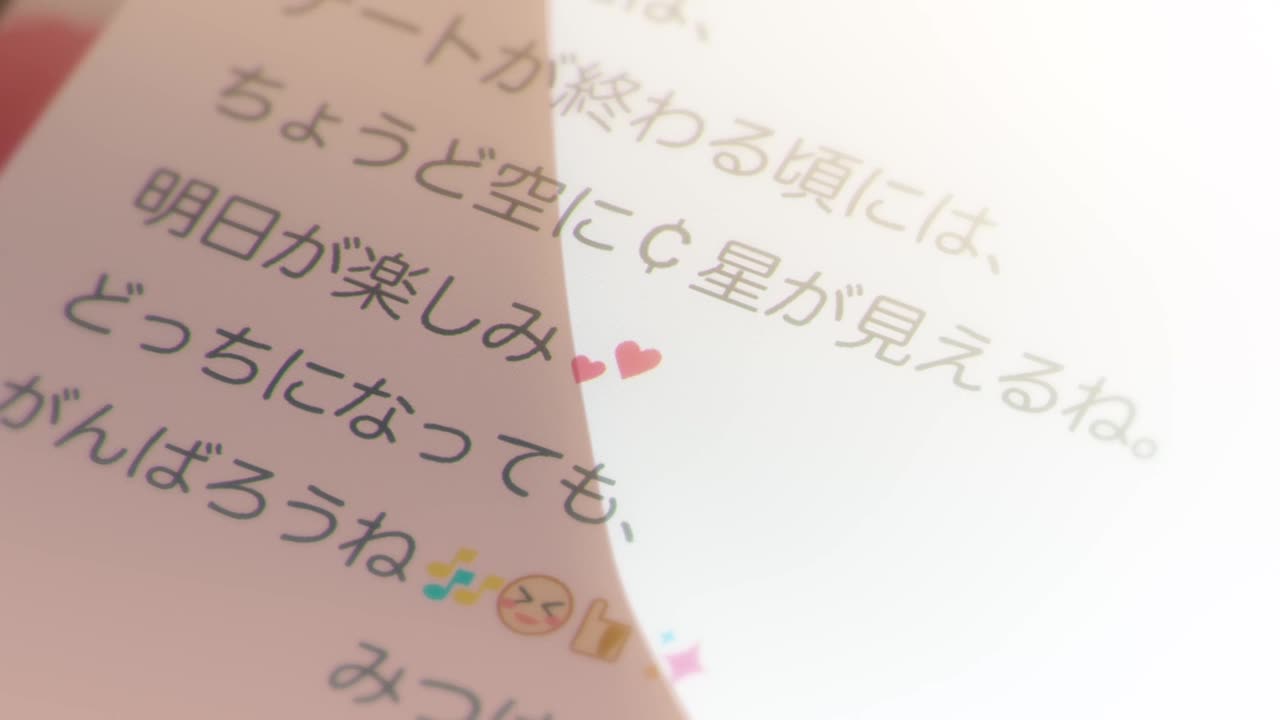 は、
デートが終わる頃には、
ちょうど空に₵星が見えるね。
明日が楽しみ💕
どっちになっても、
がんばろうね🎶😆👍✨
みつは